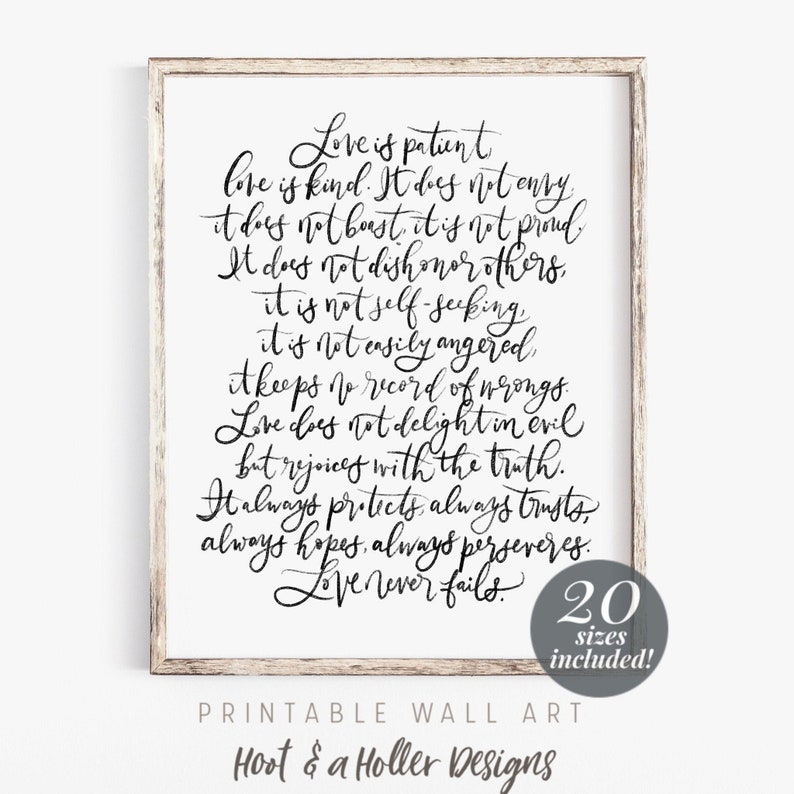 Love is patient,
love is kind. It does not envy,
it does not boast, it is not proud.
It does not dishonor others,
it is not self-seeking,
it is not easily angered,
it keeps no record of wrongs.
Love does not delight in evil
but rejoices with the truth.
It always protects, always trusts,
always hopes, always perseveres.
Love never fails.
20
sizes
included!
PRINTABLE WALL ART
Hoot & a Holler Designs